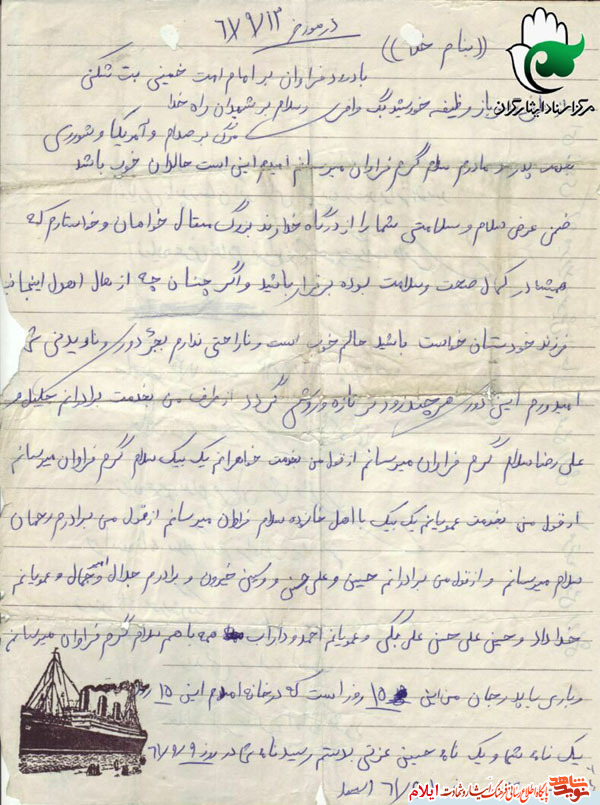 در مورخ ۶۷/۹/۱۳
((بنام خدا))
مرکز اسناد ایثارگران
با درود فراوان بر امام امت خمینی بت شکن
وسلام بر شهیدان راه خدا
مرگ بر صدام و آمریکا و شوروی
خدمت پدر و مادرم سلام گرم فراوان میرسانم امیدم اینی است حالتان خوب باشد
ضمن عرض سلام و سلامتی شما را از درگاه خداوند بزرگ متعال خواهان و خواستارم که
همیشه در کمال صحت و سلامت بوده برقرار باشید و اگر چنان چه از حال احوال اینجانب
فرزند خودتان خواست باشید حالم خوب است و ناراحتی ندارم بجز دوری و نادیدنی شما
امیدورم اینی دوری هر چند زودتر تازه وروشنی گردد از طرف من بخدمت برادرانم
علی رضا سلام گرم فراوان میرسانم از قول من بخدمت خواهرانم یک بیک سلام گرم فراوان میرسانم
از قول من بخدمت عمویانم یک بیک با اهل خانواده سلام فراوان میرسانم از قول من برادرم رحمان
سلام میرسانم و از قول من برادرانم حسین و علی حسن و و برادرم جلال و جمال و عمویانم
خداداد و حسین علی حسن علی بگی و عمویانم احمد و داراب همه با هم سلام گرم فراوان میرسانم
و باری بابا پدرجان من اینی ۱۵ روز است که در خانه آمدم این ۱۵
یک نامه شما و یک نامه حسین عزتی بدستم رسید نامه شما در روز ۶۷/۹/۹
نوید شاهد
پایگاه اطلاع رسانی فرهنگ ایثار و شهادت ایلام